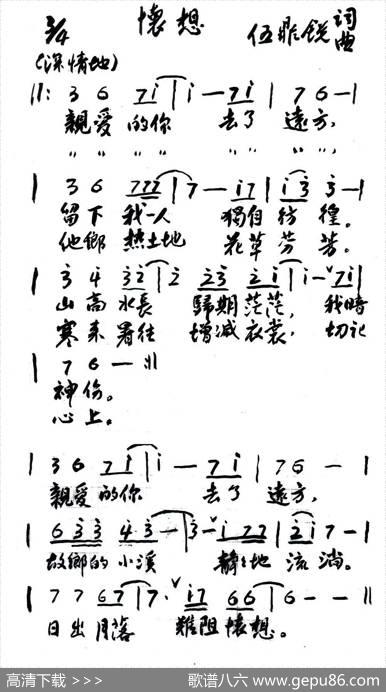 懷想
3/4
伍暱銳 詞曲
(深情地)
||: 3 6 7i | i — 7i | 7 6 — |
親愛 的你 去了 遠方,
" " " " " " " ",
| 3 6 777 | 7 — i7 | i3 3 — |
留下 我一人 獨自 彷 徨。
他鄉 熱土地 花草 芬 芳。
| 3 4 32 | 2 23 2i | i — ˇ7i |
山高 水長 歸期 茫茫, 我暗
寒來 暑往 增減 衣裳, 切記
| 7 6 — :||
神傷。
心上。
| 3 6 7i | i — 7i | 76 — |
親愛 的你 去了 遠方,
| 633 43 — | 3 — ˇi77 | 2i7 — |
故鄉的 小溪 靜靜地 流淌。
| 7 7 67 | 7. ˇi7 66 | 6 — — ||
日出 月落 難阻 懷想。
高清下载 >>>
歌谱八六 www.gepu86.com